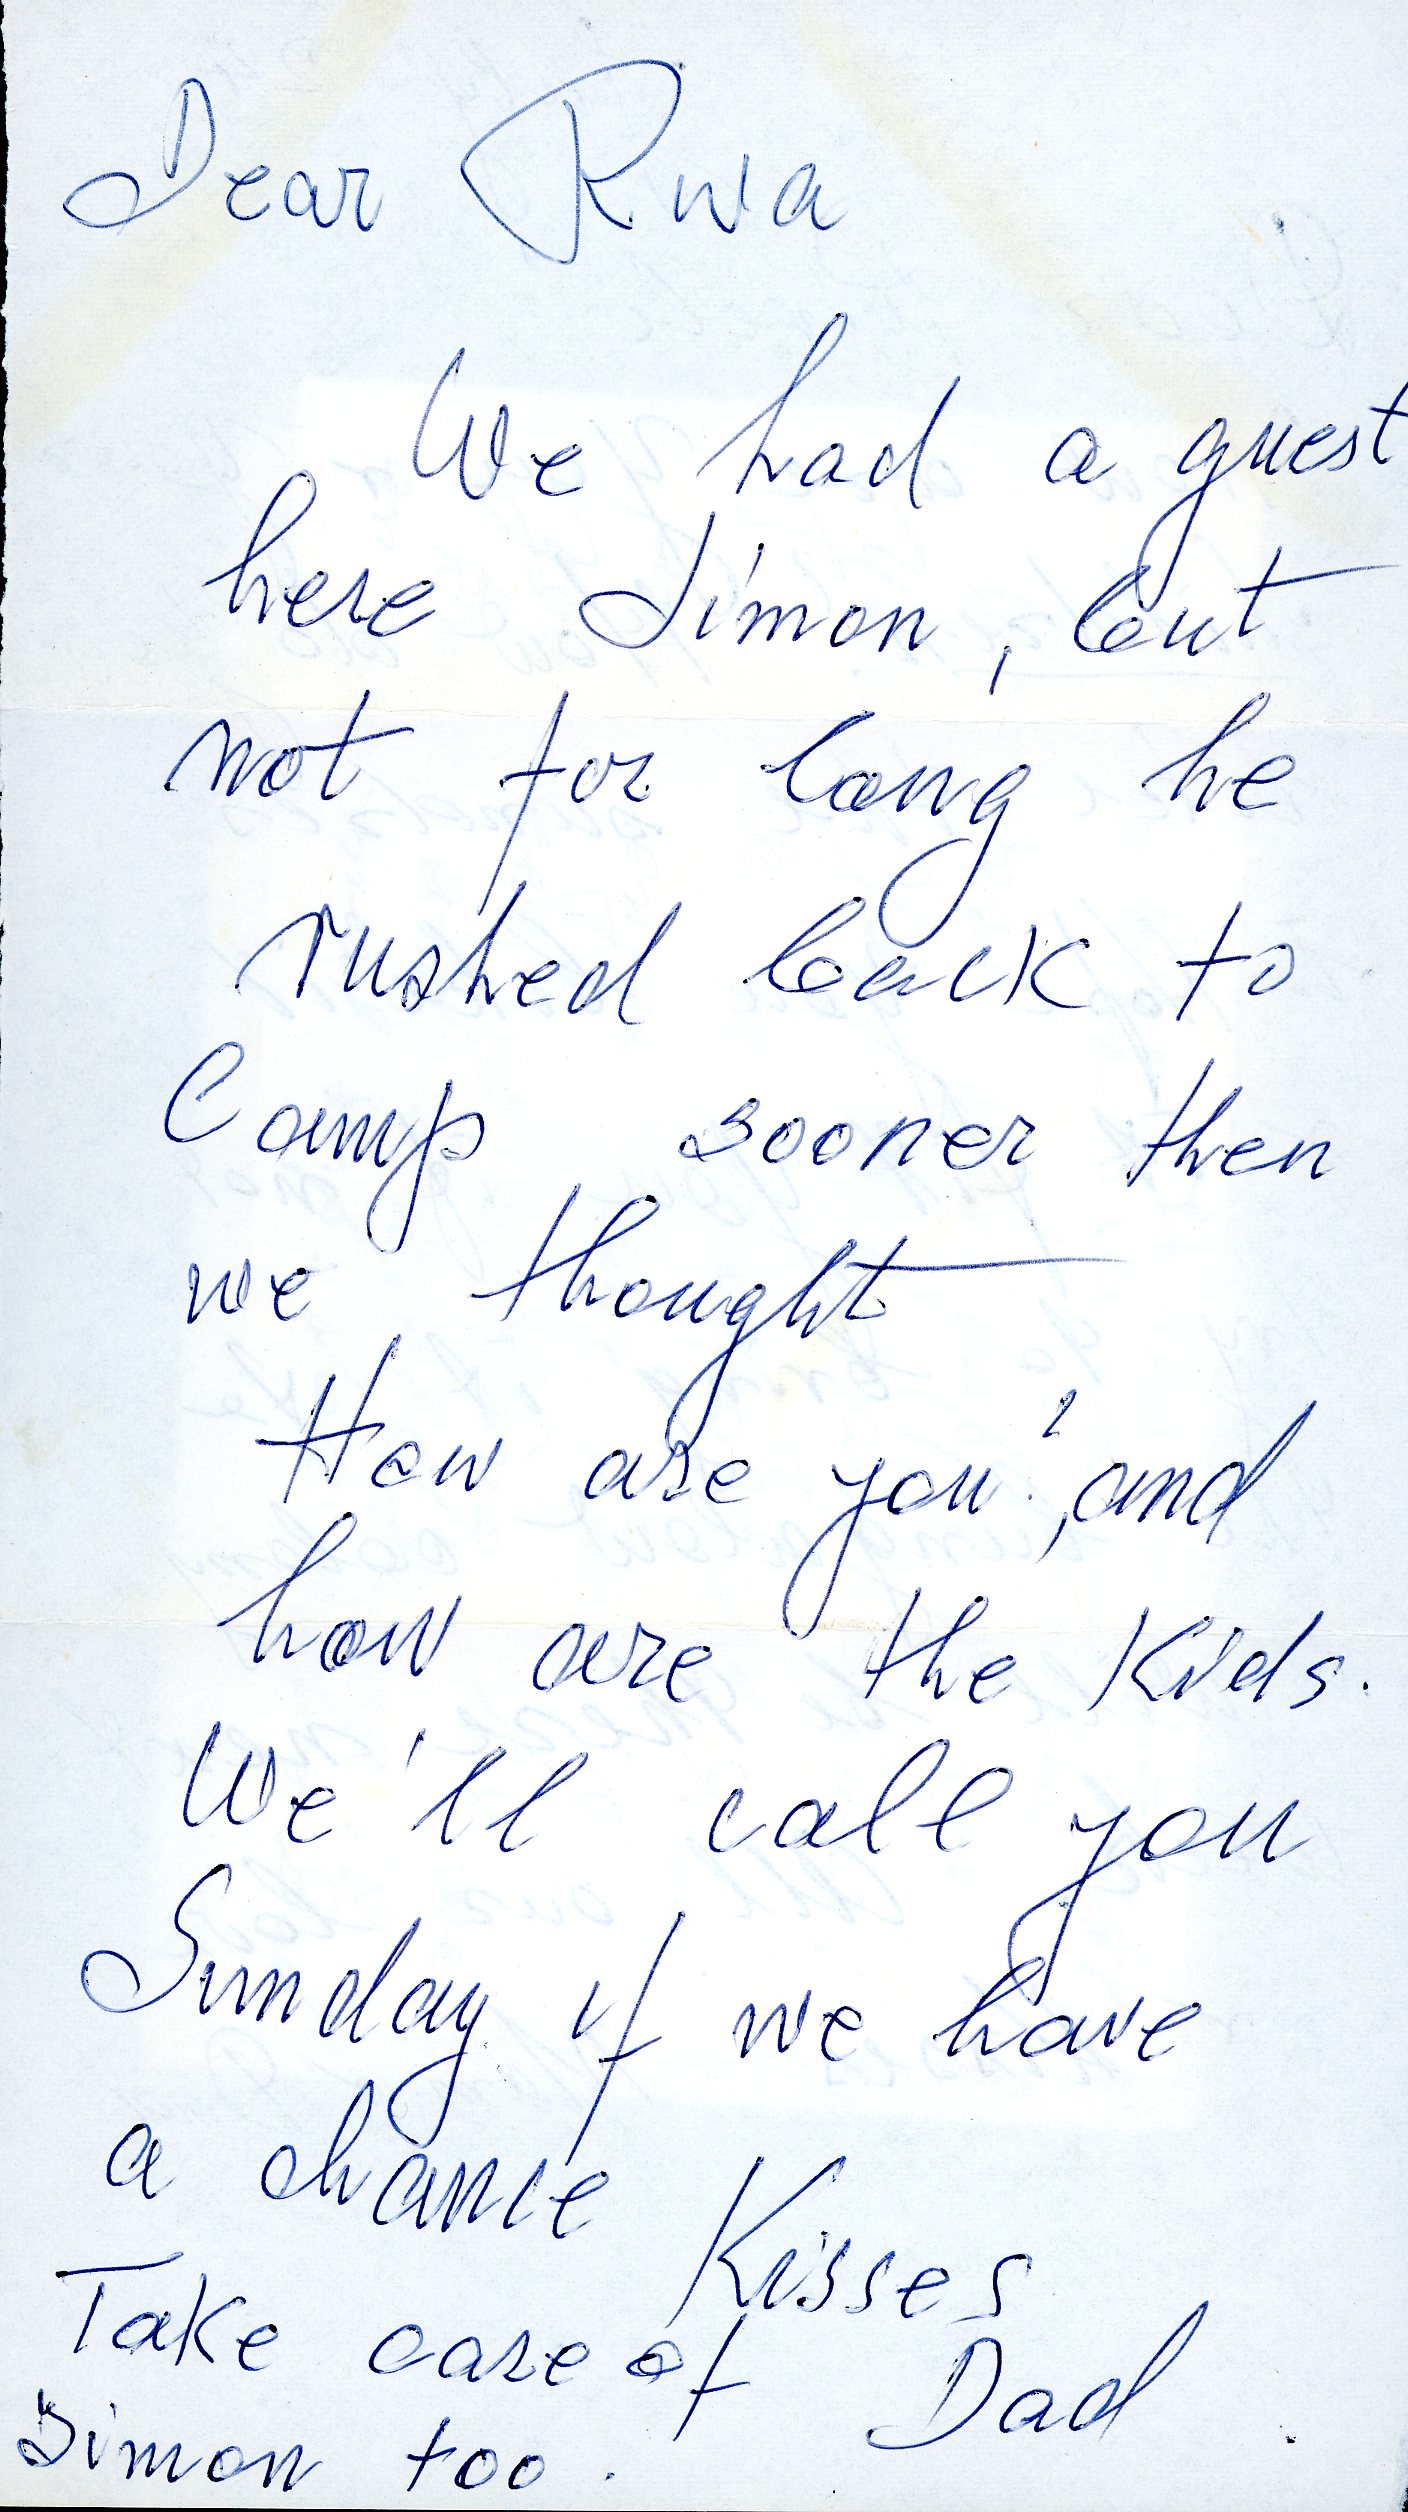 Dear Rwa
We had a guest
here Simon, but
not for long he
rushed back to
Camp sooner then
we thought
How are you?, and
how are the Kids.
We'll call you
Sunday if we have
a chance
Kisses
Take care of
Dad.
Simon too.